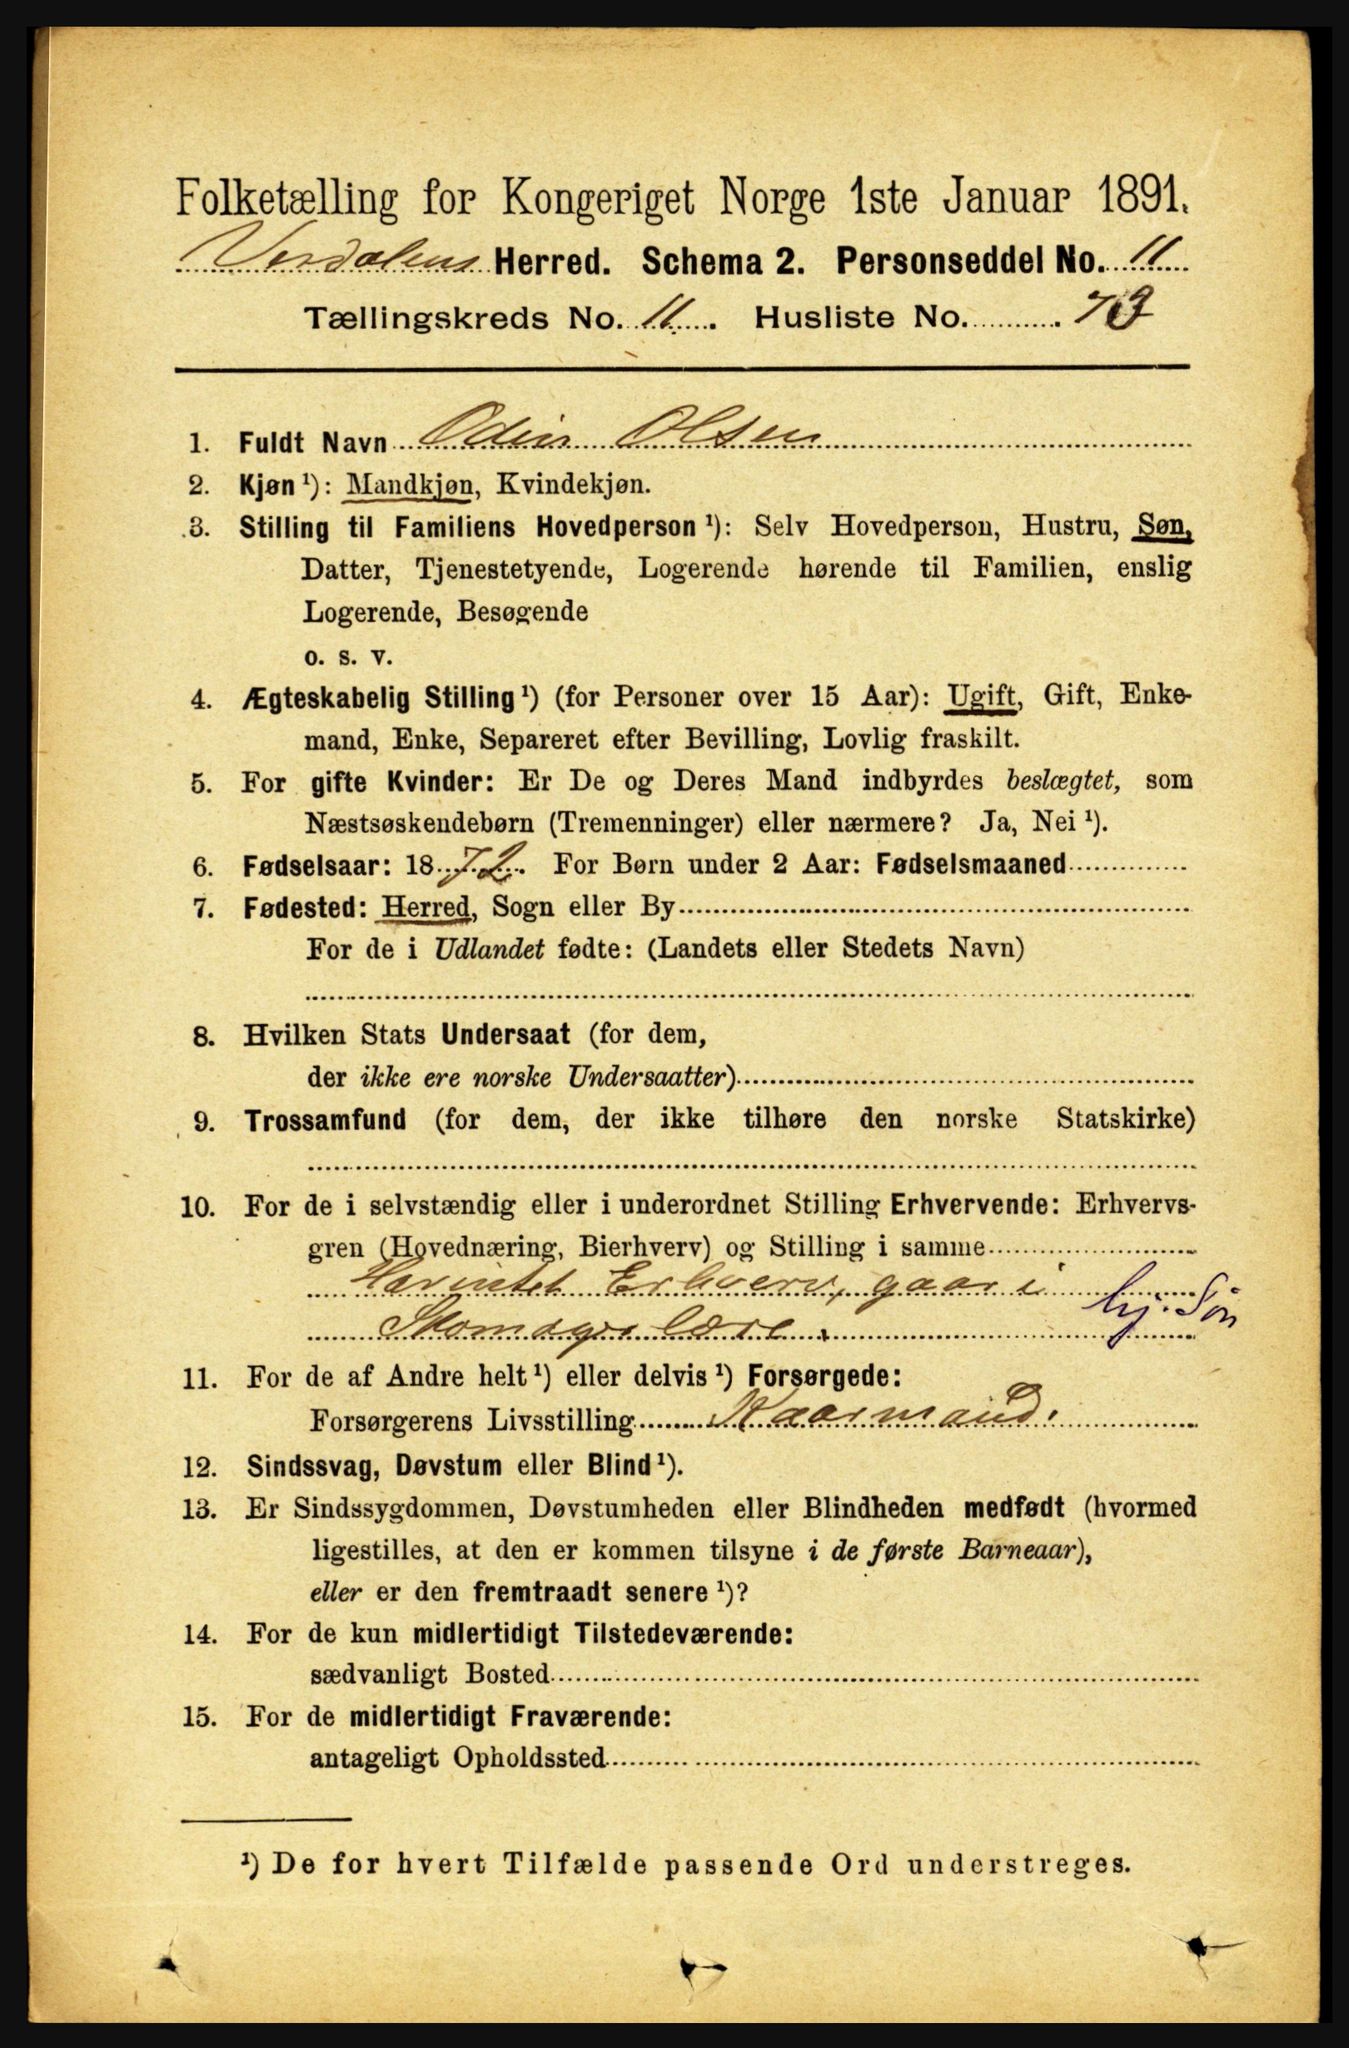 Folketælling for Kongeriget Norge 1ste Januar 1891.
Verdalens Herred. Schema 2. Personseddel No. 11
Tællingskreds No. 11. Husliste No.
1. Fuldt Navn Odin Olsen
2. Kjøn ¹): Mandkjøn, Kvindekjøn.
3. Stilling til Familiens Hovedperson ¹): Selv Hovedperson, Hustru, Søn,
Datter, Tjenestetyende, Logerende hørende til Familien, enslig
Logerende, Besøgende
o. s. v.
4. Ægteskabelig Stilling ¹) (for Personer over 15 Aar): Ugift, Gift, Enke-
mand, Enke, Separeret efter Bevilling, Lovlig fraskilt.
5. For gifte Kvinder: Er De og Deres Mand indbyrdes beslægtet, som
Næstsøskendebørn (Tremenninger) eller nærmere? Ja, Nei ¹).
6. Fødselsaar: 1872. For Børn under 2 Aar: Fødselsmaaned
7. Fødested: Herred, Sogn eller By
For de i Udlandet fødte: (Landets eller Stedets Navn)
8. Hvilken Stats Undersaat (for dem,
der ikke ere norske Undersaatter)
9. Trossamfund (for dem, der ikke tilhøre den norske Statskirke)
10. For de i selvstændig eller i underordnet Stilling Erhvervende: Erhvervs-
gren (Hovednæring, Bierhverv) og Stilling i samme
Har intet Erhverv, gaar i
Skomagerlære. hj. Søn
11. For de af Andre helt ¹) eller delvis ¹) Forsørgede:
Forsørgerens Livsstilling Kaarmand.
12. Sindssvag, Døvstum eller Blind ¹).
13. Er Sindssygdommen, Døvstumheden eller Blindheden medfødt (hvormed
ligestilles, at den er kommen tilsyne i de første Barneaar),
eller er den fremtraadt senere ¹)?
14. For de kun midlertidigt Tilstedeværende:
sædvanligt Bosted
15. For de midlertidigt Fraværende:
antageligt Opholdssted
¹) De for hvert Tilfælde passende Ord understreges.